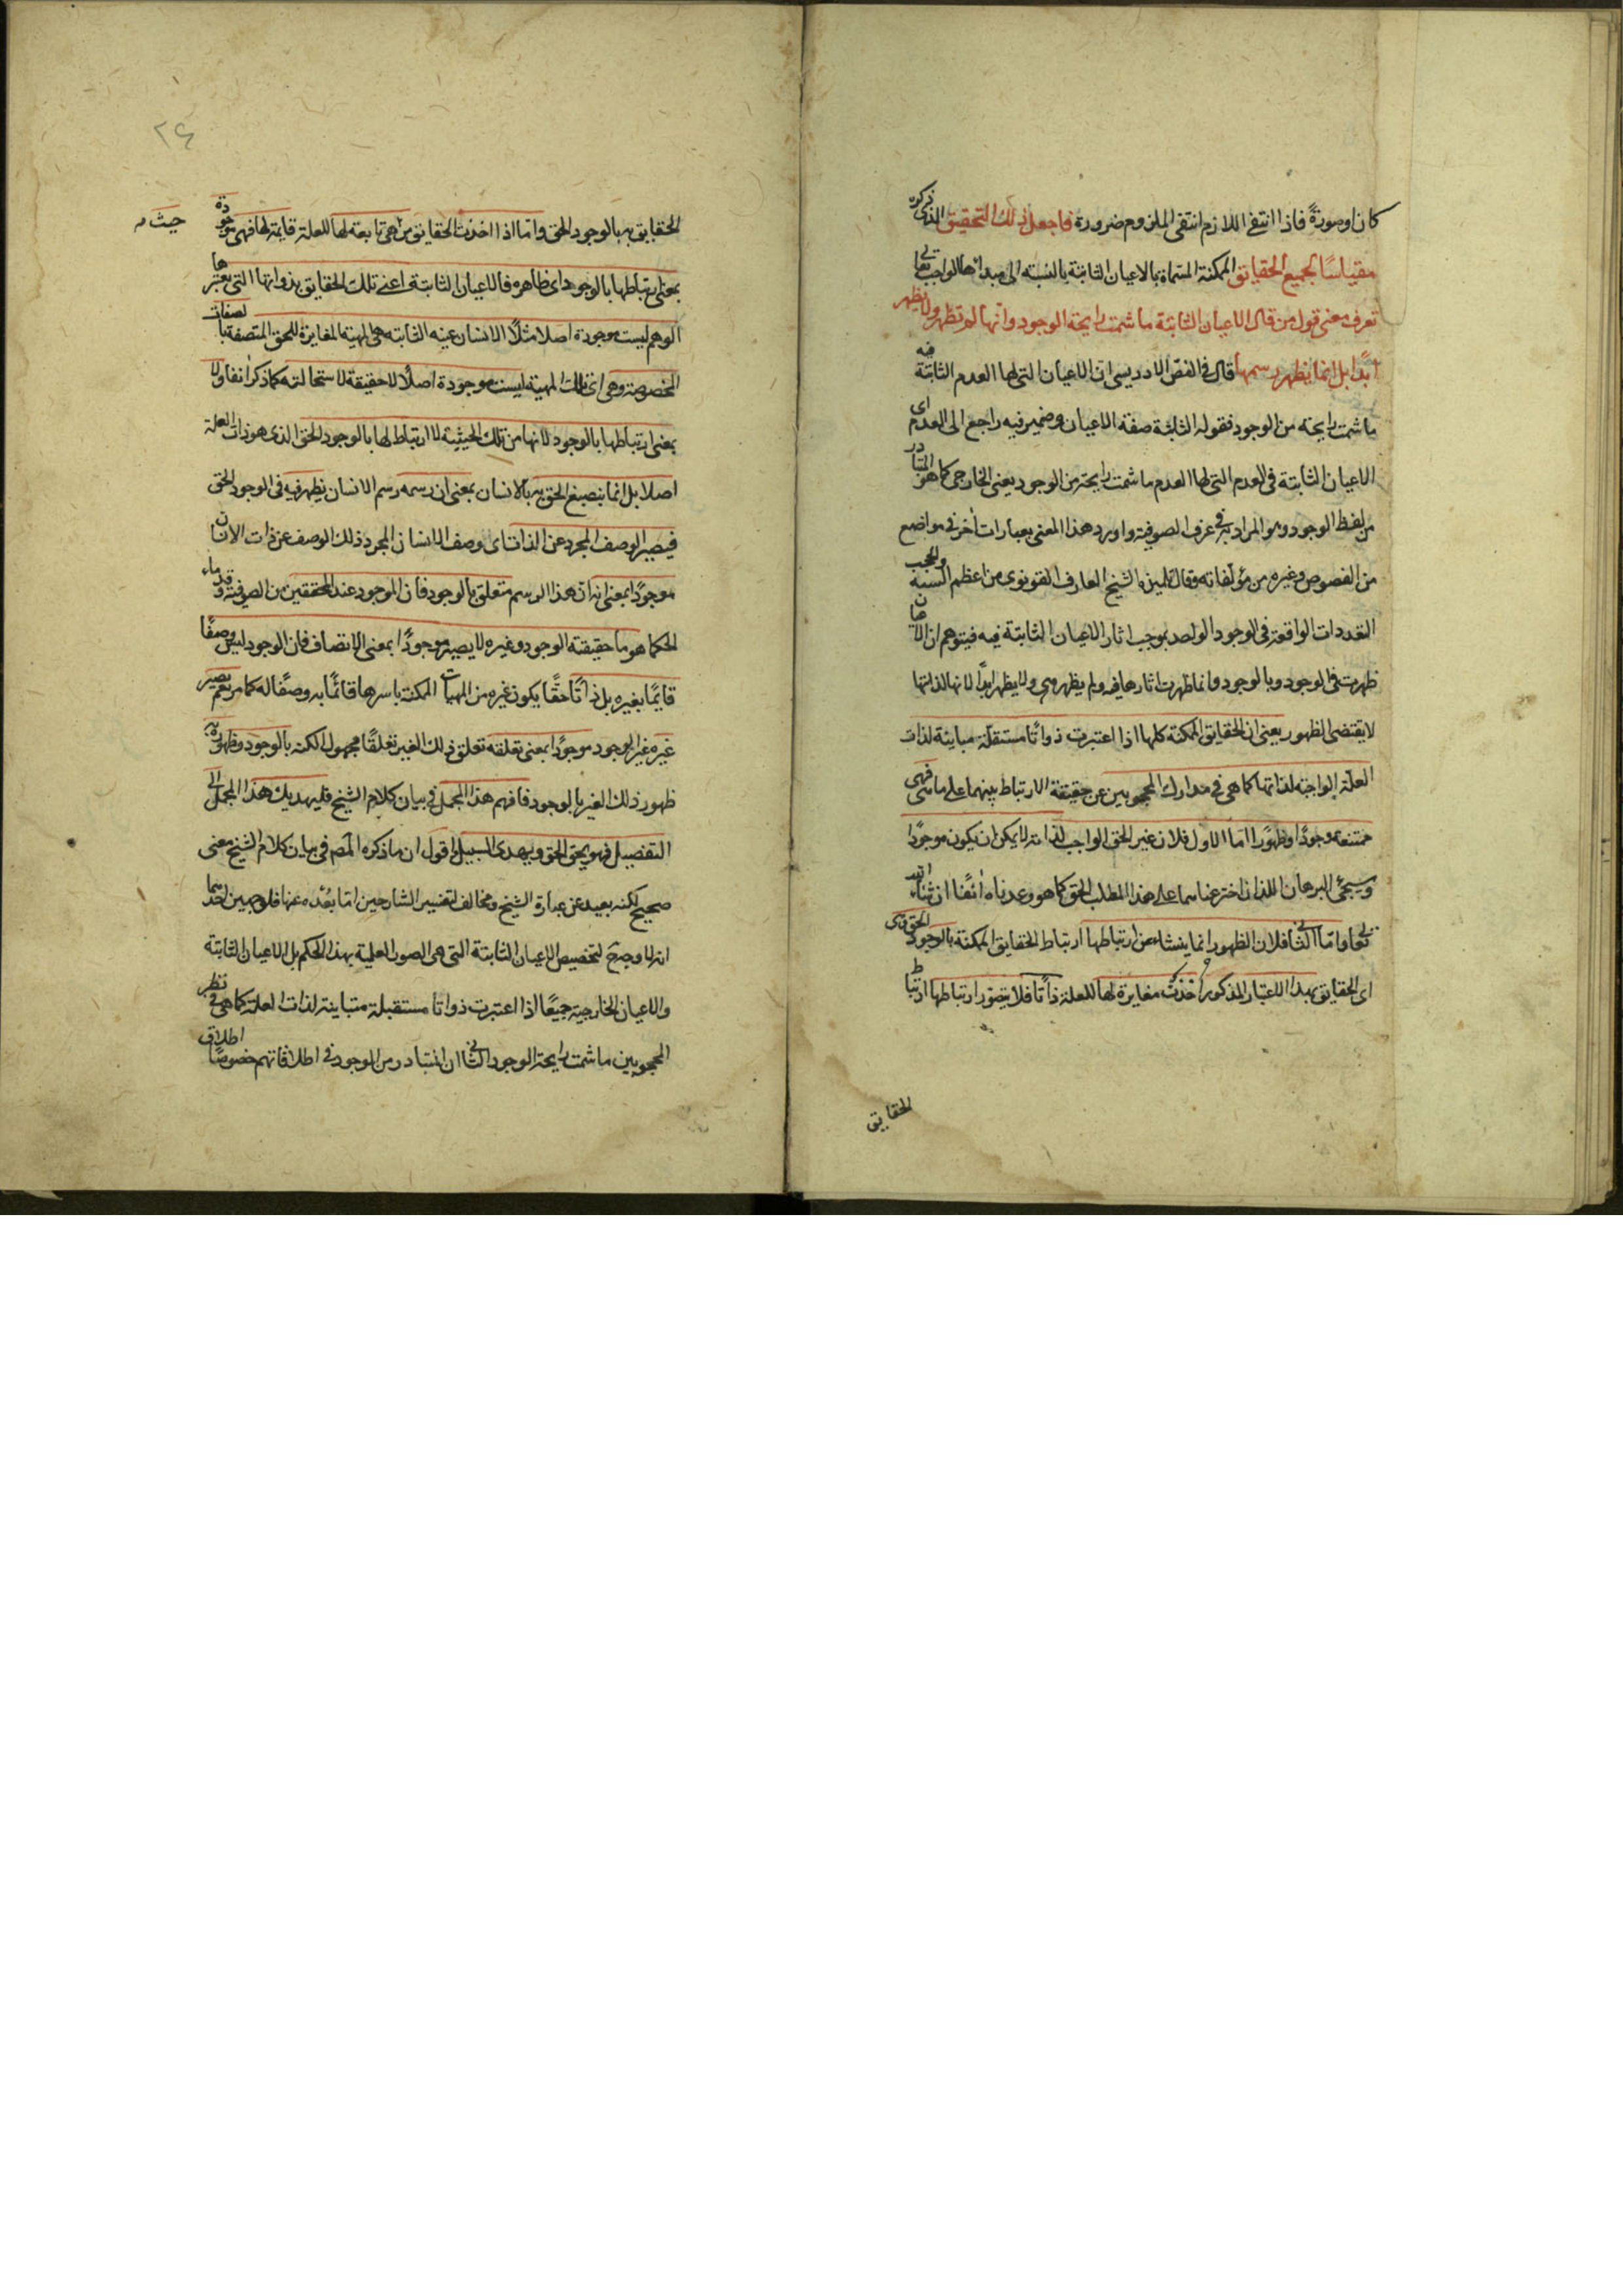 كان او صورةً فاذا انتفى اللازم انتفى الملزوم ضرورة فاجعل ذلك التحقيق الذى ذكره
مقياسًا لجميع الحقايق الممكنة المسماة بالاعيان الثابتة بالنسبه الى مبدأها الواجب تعالى
تعرف معنى قول من قال الاعيان الثابتة ما شمت رايحة الوجود وانها لم تظهر ولا تظهر
ابدًا بل انما يظهر رسمها قال فى الفص الادريسى ان الاعيان التى لها العدم الثابتة فيه
ما شمت رايحة من الوجود فقوله الثابتة صفة الاعيان وضمير فيه راجع الى العدم اى
الاعيان الثابتة فى العدم التى لها العدم ما شمت رايحة من الوجود يعنى الخارجى كما هو المتبادر
من لفظ الوجود وهو المراد به فى عرف الصوفية واورد هذا المعنى بعبارات أخر فى مواضع
من الفصوص وغيره من مؤلفاته وقال تلميذه الشيخ العارف القونوى من اعظم الشبه والحجب
التعددات الواقعة فى الوجود الواحد بموجب اثار الاعيان الثابتة فيه فيتوهم ان الاعيان
ظهرت فى الوجود وبالوجود وانما ظهرت اثارها فيه ولم يظهر هى ولا يظهر ابدًا لانها لذاتها
لا يقتضى الظهور يعنى ان الحقايق الممكنة كلها اذا اعتبرت ذواتًا مستقلة مباينة لذات
العلة الواجبة لذاتها كما هى فى مدارك المحجوبين عن حقيقة الارتباط بينهما على ما سمى فهى
ممتنعة وجودًا وظهورًا اما الاول فلان غير الحق الواجب لذاته لا يمكن ان يكون موجودًا
وسيجئ البرهان اللذان اخترعناهما على هذا المطلب الحق كما هو وعدناه انفًا ان شاء الله
تعالى واما الثانى فلان الظهور انما ينشاء من ارتباطها ارتباط الحقايق الممكنة بالوجود الحق وهى
اى الحقايق بهذا الاعتبار المذكور أخذت مغايرة لها للعلة ذاتًا فلا يتصور ارتباطها ارتباط
الحقايق
٢٤
الحقايق به بالوجود الحق واما اذا اخذت الحقايق من هى تابعة لها للعلة قايمة لها فهى موجودة
حيث
بمعنى ارتباطها بالوجود اى ظاهره فالاعيان الثابتة اعنى تلك الحقايق بذواتها التى يعتبرها
الوهم ليست موجودة اصلا مثلًا الانسان عينه الثابته هى المهية المغايرة للحق المتصفة بالصفات
المخصوصة وهى اى تلك المهية ليست موجودة اصلًا لا حقيقة لاستحالته كما ذكر انفا ولا
بمعنى ارتباطها بالوجود لانها من تلك الحيثية لا ارتباط لها بالوجود الحق الذى هو ذات العلة
اصلا بل انما ينصبغ الحق به بالانسان بمعنى ان رسمه رسم الانسان يظهر فيه فى الوجود الحق
فيصير الوصف المجرد عن الذات اى وصف الانسان المجرد ذلك الوصف عن ذات الانسان
موجودًا بمعنى انه ان هذا الرسم متعلق بالوجود فان الموجود عند المحققين من الصوفية وقدماء
الحكما هو ما حقيقته الوجود وغيره لا يصير موجودًا بمعنى الاتصاف فان الوجود ليس وصفًا
قايمًا بغيره بل ذاتًا حقًا يكون غيره من المهيات الممكنة باسرها قائمًا به وصفًا له كما مر نعم يصير
غيره غير الوجود موجودًا بمعنى تعلقه تعلق ذلك الغير تعلقًا مجهول الكنه بالوجود وظهوره به
ظهور ذلك الغير بالوجود فافهم هذا المجمل فى بيان كلام الشيخ فليهديك هذا المجمل الى
التفصيل فهو يحق الحق ويهدى السبيل اقول ان ما ذكره المص فى بيان كلام الشيخ معنى
صحيح لكنه بعيد عن عبارة الشيخ ومخالف لتفسير الشارحين اما بُعْده عنها فلوجهين احدهما
انه لا وجه ح لتخصيص الاعيان الثابتة التى هى الصور العلمية بهذا الحكم بل الاعيان الثابتة
والاعيان الخارجية جميعًا اذا اعتبرت ذواتا مستقبلة متباينة لذات العلة كما هى فى نظر
المحجوبين ما شمت رايحة الوجود الثانى ان المتبادر من الوجود فى اطلاقاتهم خصوصًا اطلاق